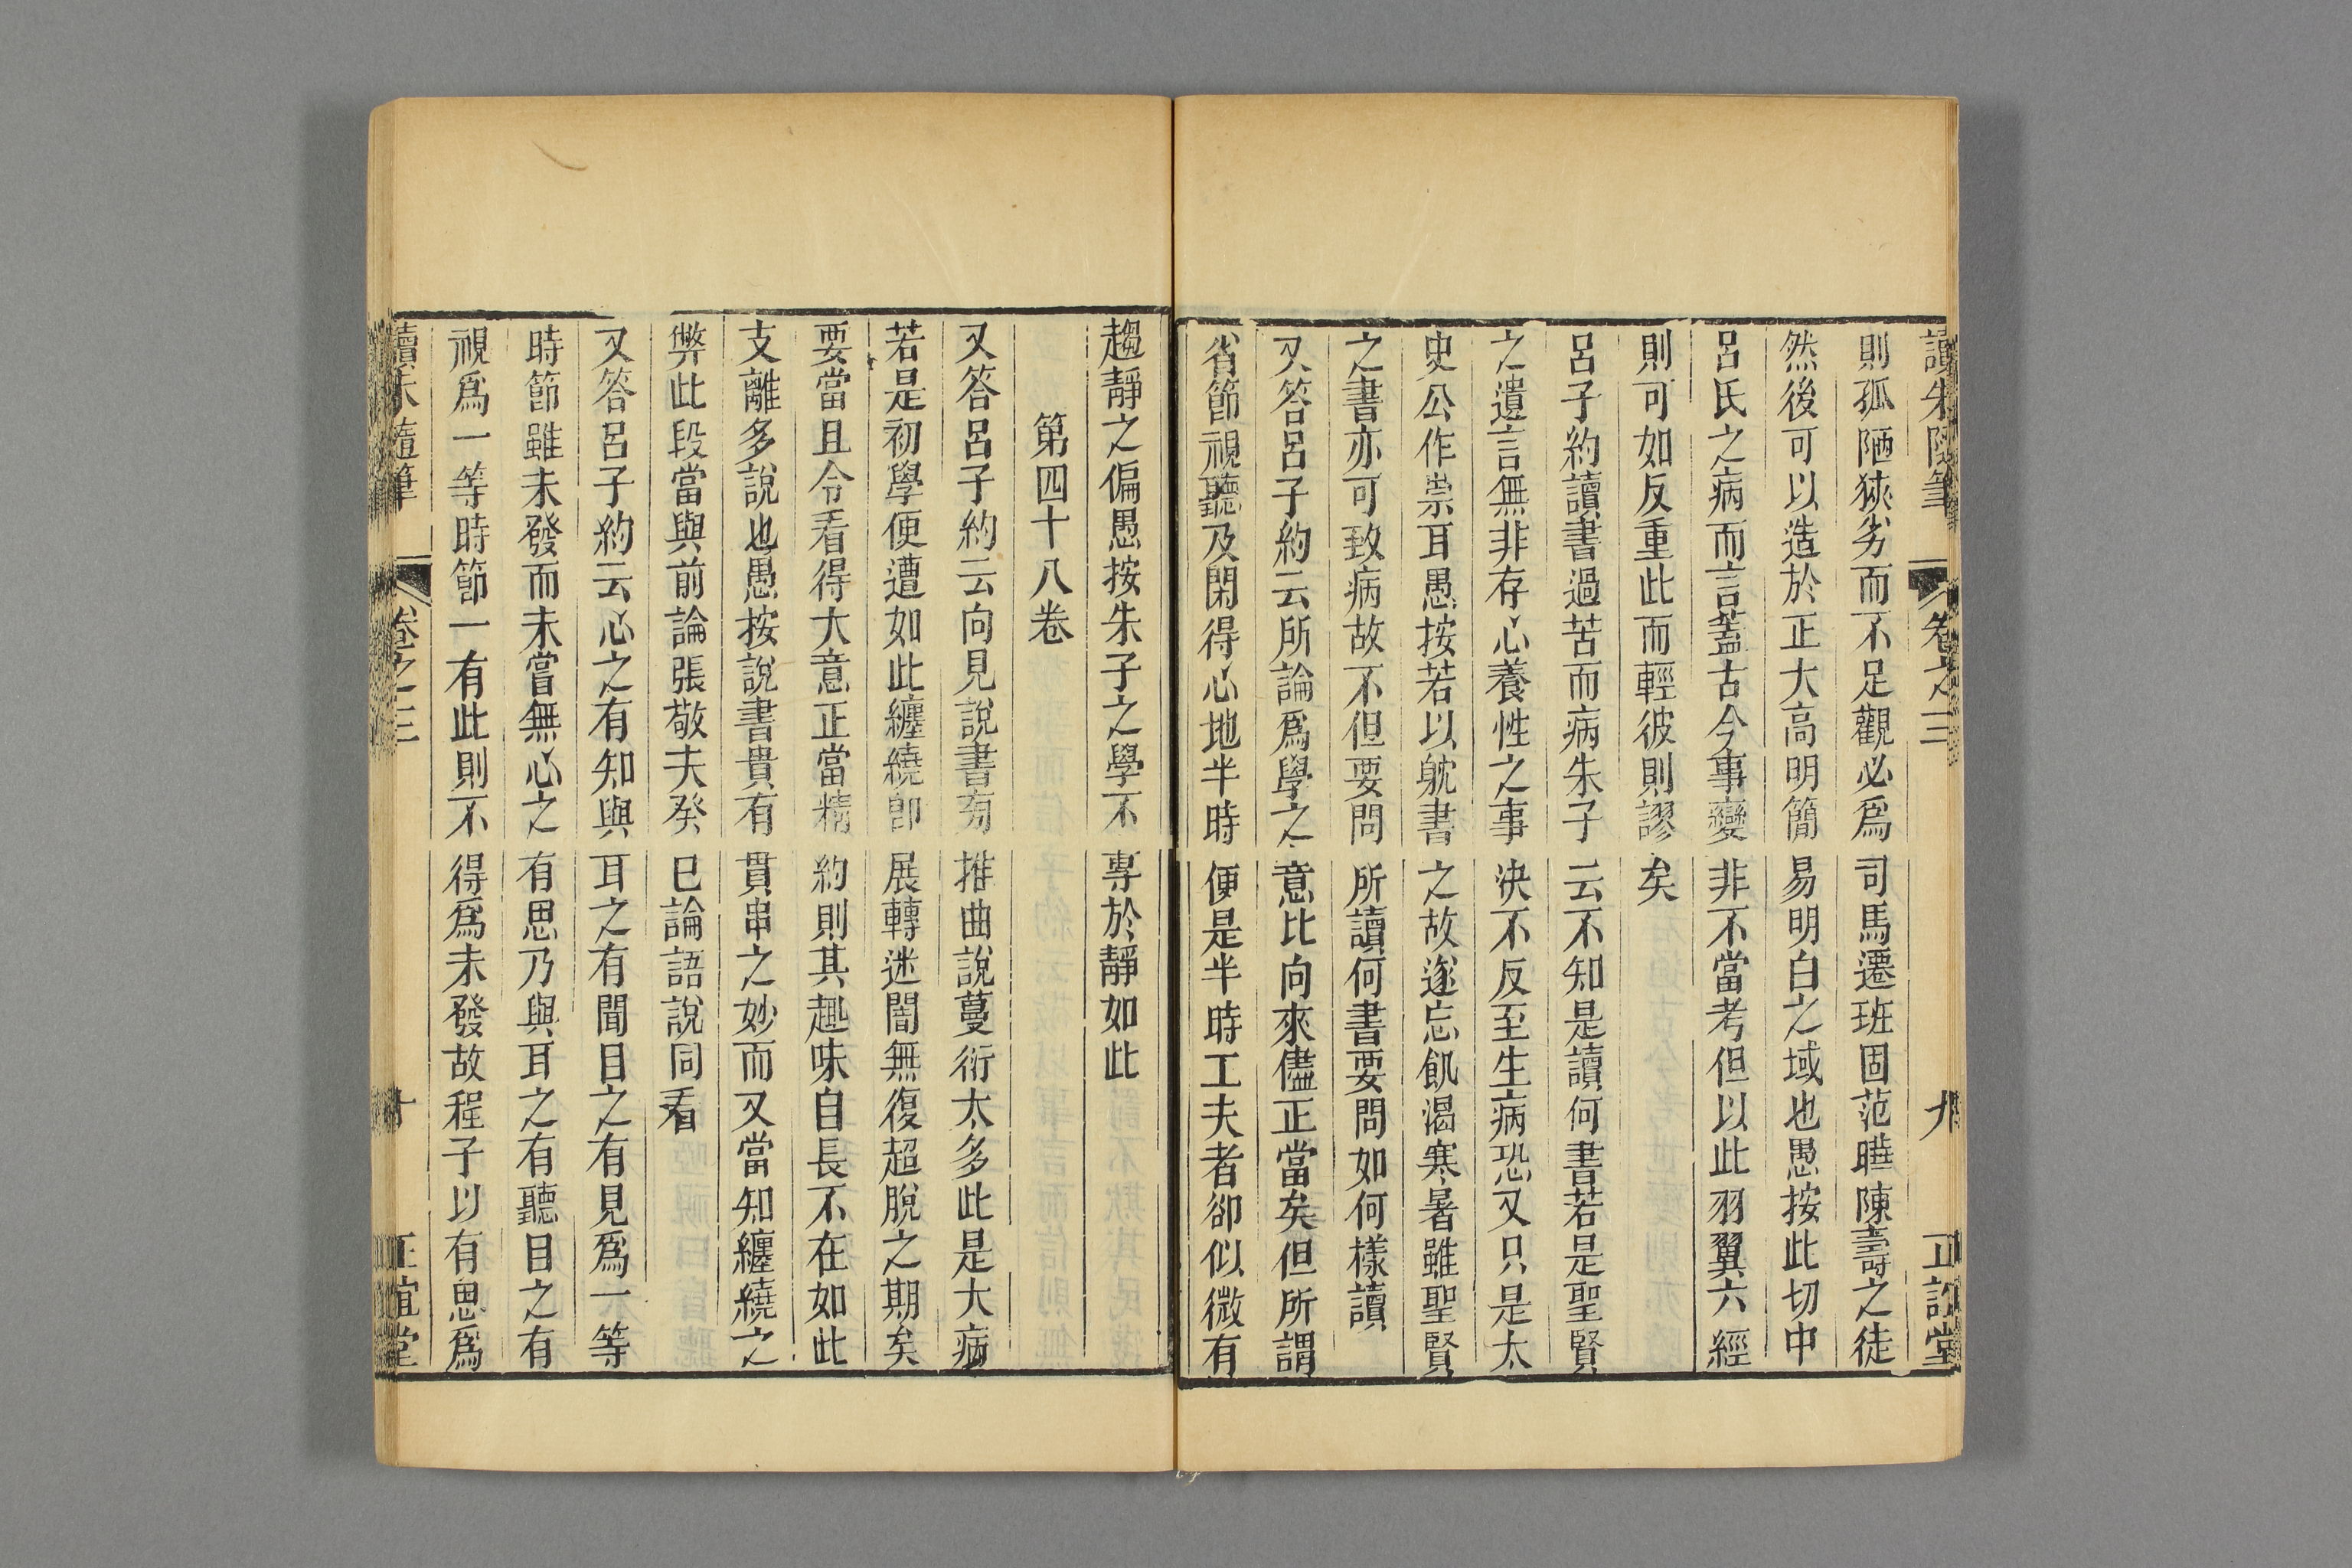 讀朱隨筆 卷之三 九 正誼堂
則孤陋狹劣而不足觀必爲司馬遷班固范曄陳壽之徒
然後可以造於正大高明簡易明白之域也愚按此切中
呂氏之病而言蓋古今事變非不當考但以此羽翼六經
則可如反重此而輕彼則謬矣
呂子約讀書過苦而病朱子云不知是讀何書若是聖賢
之遺言無非存心養性之事決不反至生病恐又只是太
史公作祟耳愚按若以躭書之故遂忘飢渴寒暑雖聖賢
之書亦可致病故不但要問所讀何書要問如何樣讀
又答呂子約云所論爲學之意比向來儘正當矣但所謂
省節視聽及閑得心地半時便是半時工夫者卻似微有
趨靜之偏愚按朱子之學不專於靜如此
第四十八卷
又答呂子約云向見說書旁推曲說蔓衍太多此是大病
若是初學便遭如此纏繞卽展轉迷闇無復超脫之期矣
要當且令看得大意正當精約則其趣味自長不在如此
支離多說也愚按說書貴有貫串之妙而又當知纏繞之
弊此段當與前論張敬夫癸巳論語說同看
又答呂子約云心之有知與耳之有聞目之有見爲一等
時節雖未發而未嘗無心之有思乃與耳之有聽目之有
視爲一等時節一有此則不得爲未發故程子以有思爲
讀朱隨筆 卷之三 十 正誼堂